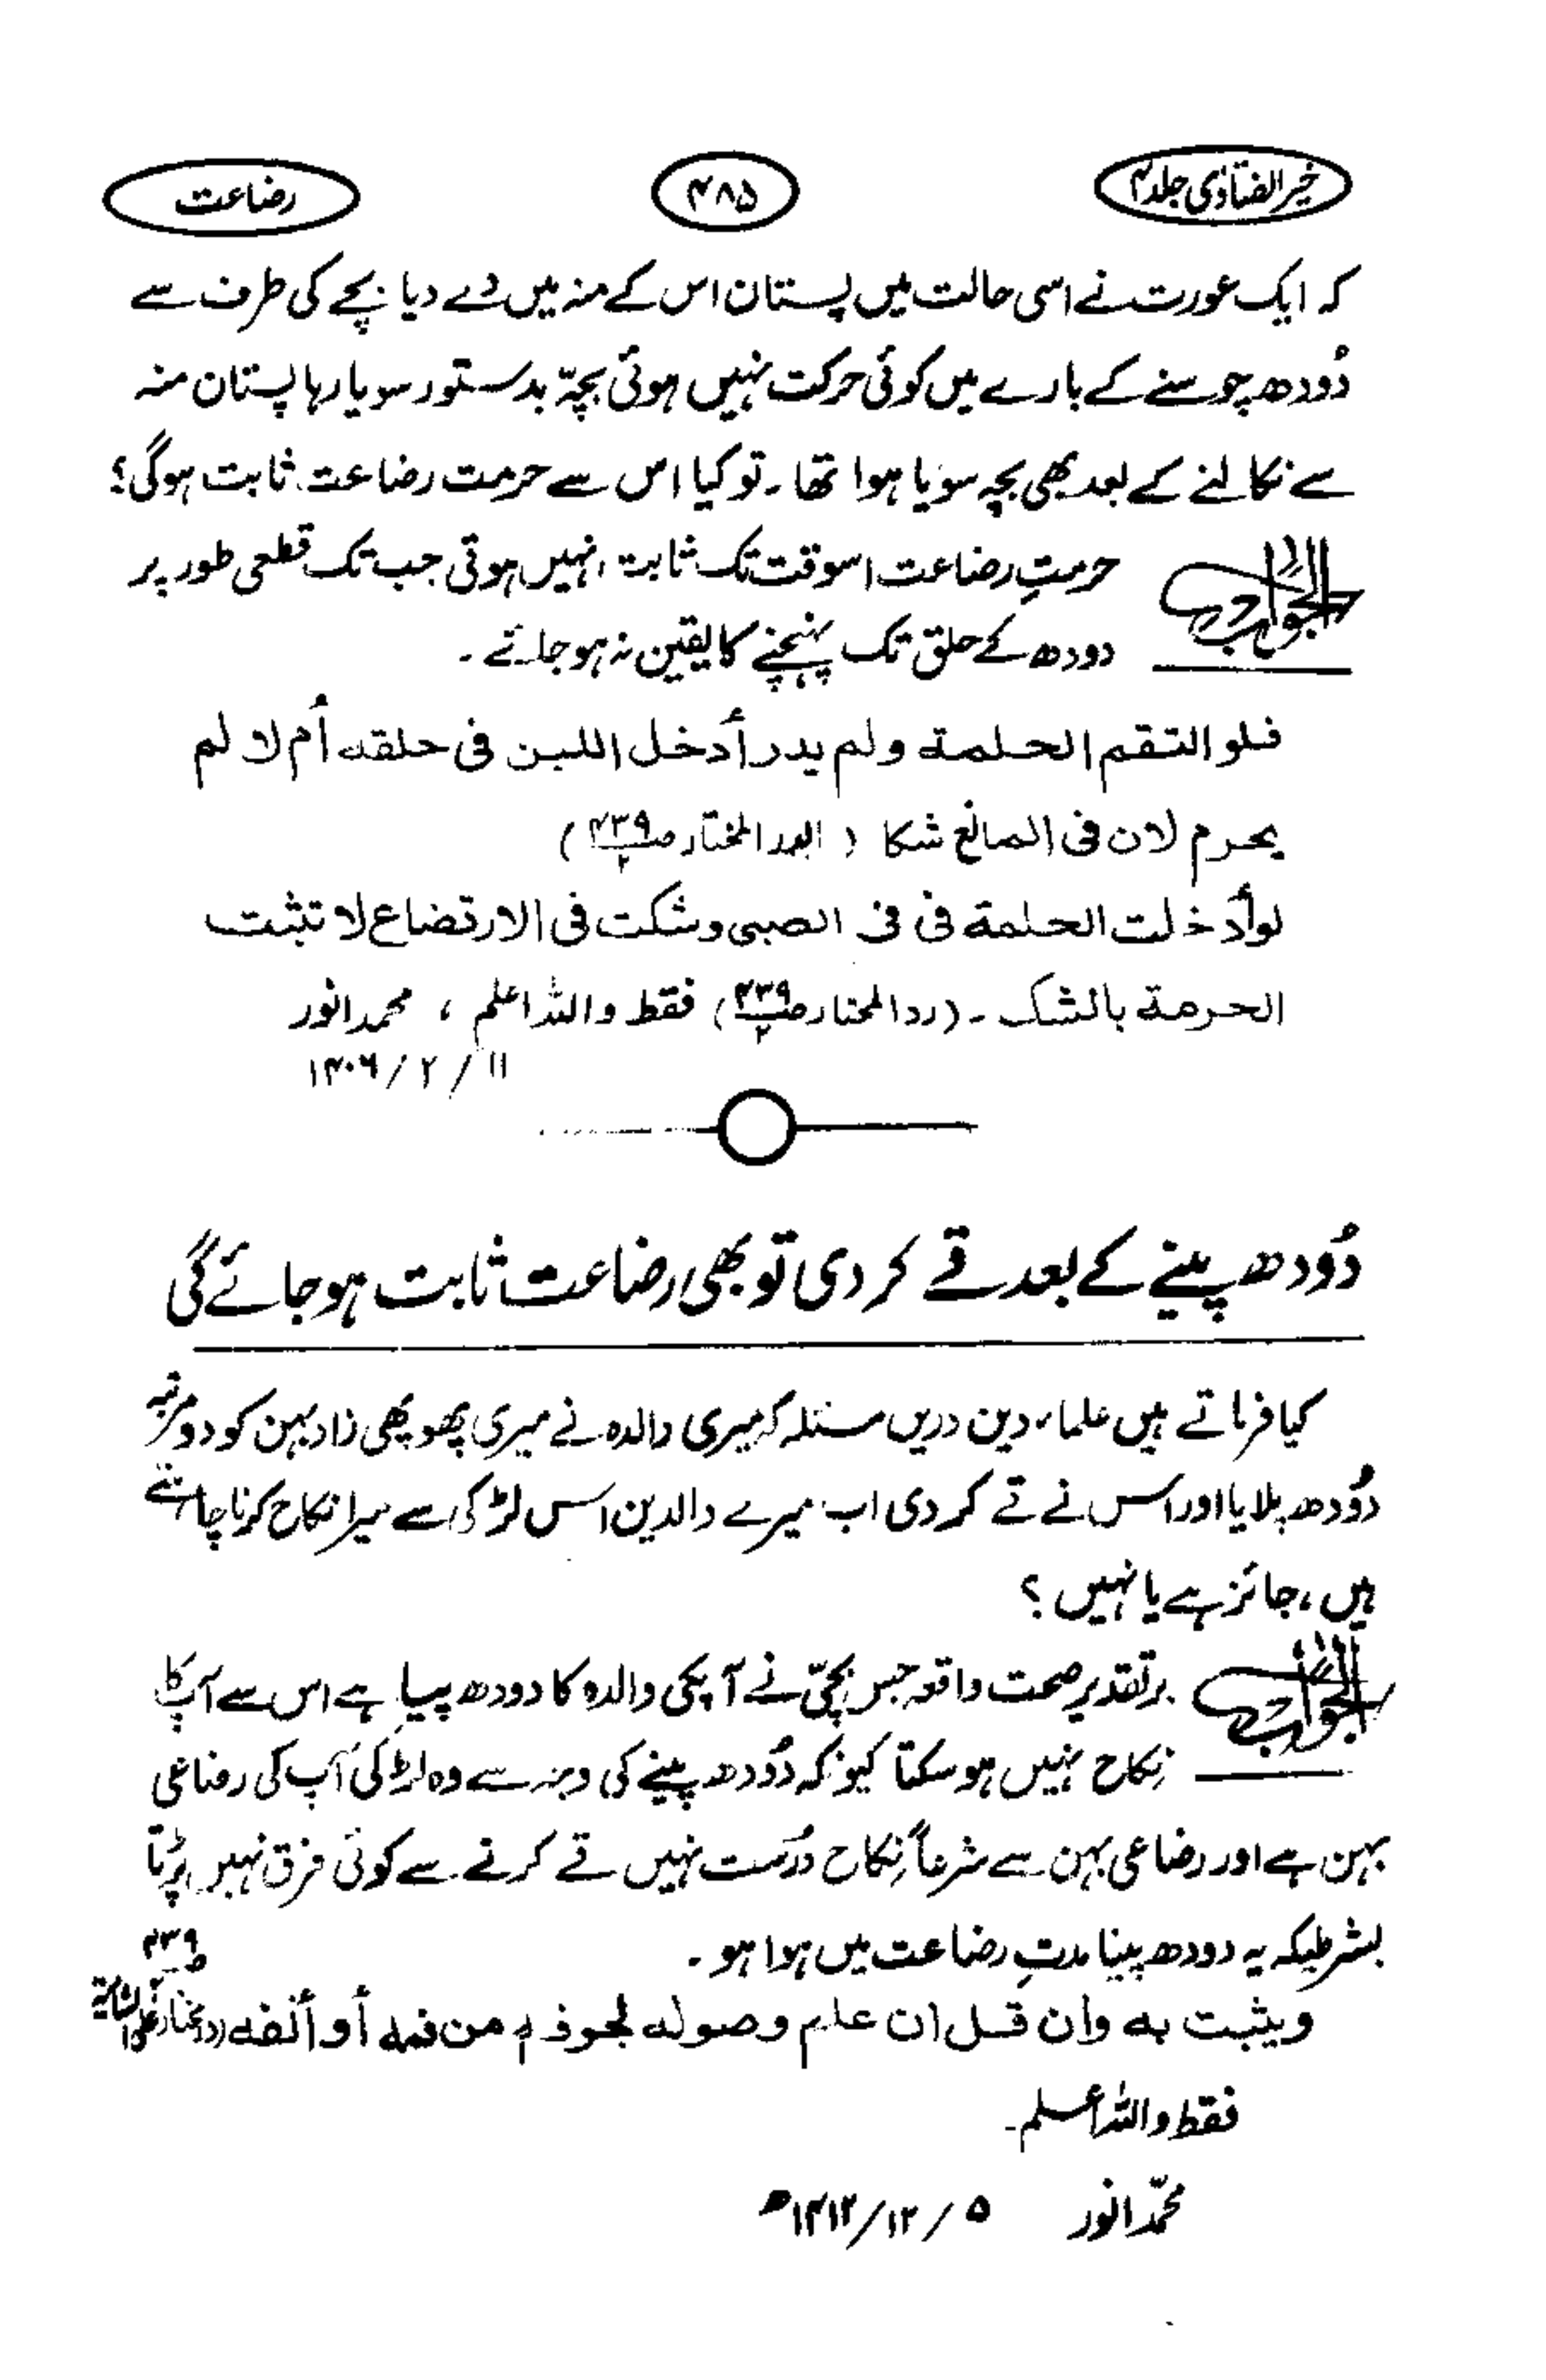 خیر الفتاوٰی جلد ۴
۴۸۵
رضاعت
کہ ایک عورت نے اسی حالت میں پستان اس کے منہ میں دے دیا بچے کی طرف سے
دُودھ چوسنے کے بارے میں کوئی حرکت نہیں ہوئی بچّہ بدستور سویا رہا پستان منہ
سے نکالنے کے بعد بھی بچہ سویا ہوا تھا۔ تو کیا اس سے حرمت رضاعت ثابت ہوگی؟
الجواب حرمتِ رضاعت اسوقت تک ثابت نہیں ہوتی جب تک قطعی طور پر
دودھ کے حلق تک پہنچنے کا یقین نہ ہو جائے۔
فلو التقم الحلمة ولم يدر أدخل اللبن فى حلقه أم لا لم
يحرم لان فى المانع شكا (الدر المختار ص ۴۳۹ ۲)
لو أدخلت الحلمة فى فى الصبى وشكت فى الارتضاع لا تثبت
الحرمة بالشك۔ (رد المحتار ص ۴۳۹ ۲) فقط واللہ اعلم ، محمد انور
۱۱ / ۲ / ۱۴۰۶
دُودھ پینے کے بعد قے کر دی تو بھی رضاعت ثابت ہو جائے گی
کیا فرماتے ہیں علماء دین دریں مسئلہ کہ میری والدہ نے میری پھوپھی زاد بہن کو دو مرتبہ
دُودھ پلایا اور اس نے قے کر دی اب میرے والدین اس لڑکی سے میرا نکاح کرنا چاہتے
ہیں، جائز ہے یا نہیں ؟
الجواب برتقدیر صحت واقعہ جس بچّی نے آپکی والدہ کا دودھ پیا ہے اس سے آپ کا
نِکاح نہیں ہو سکتا کیونکہ دُودھ پینے کی وجہ سے وہ لڑکی آپ کی رضاعی
بہن ہے اور رضاعی بہن سے شرعاً نِکاح دُرست نہیں قے کرنے سے کوئی فرق نہیں پڑتا
بشرطیکہ یہ دودھ پینا مدتِ رضاعت میں ہوا ہو۔
ويثبت به وان قل ان علم وصوله لجوفه من فمه أو أنفه ص ۴۳۹
فقط واللہ اعلم۔
محمّد انور ۵ / ۱۲ / ۱۴۱۲ھ